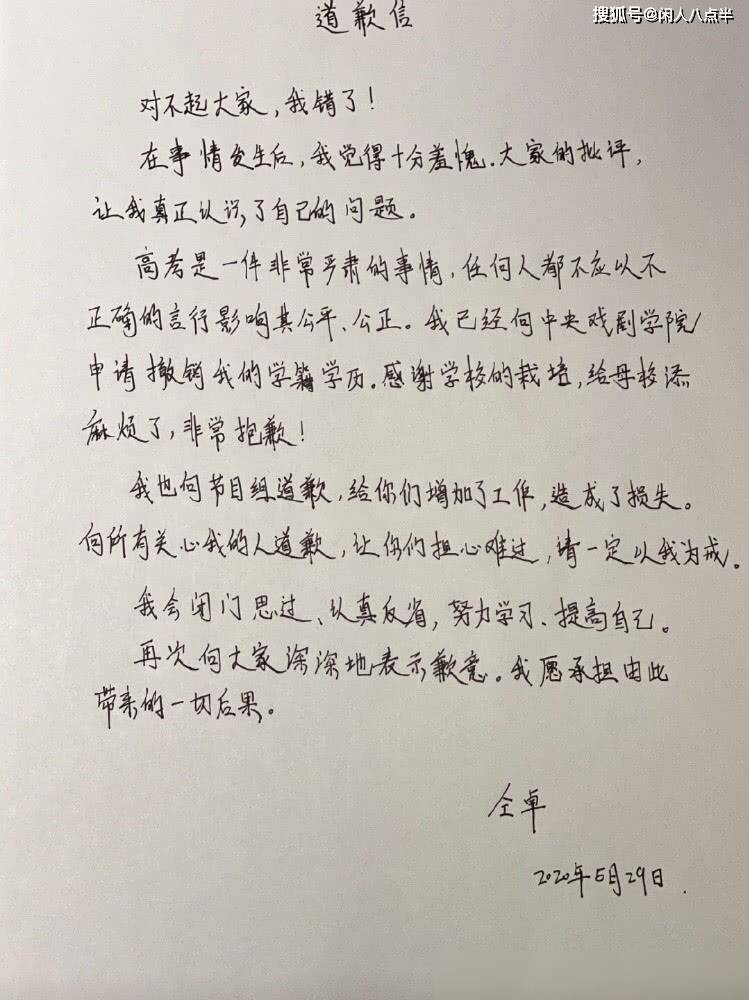 搜狐号@闲人八点半
道歉信
对不起大家,我错了!
在事情发生后,我觉得十分羞愧.大家的批评,
让我真正认识了自己的问题。
高考是一件非常严肃的事情,任何人都不应以不
正确的言行影响其公平、公正。我已经向中央戏剧学院
申请撤销我的学籍学历.感谢学校的栽培,给母校添
麻烦了,非常抱歉!
我也向节目组道歉,给你们增加了工作,造成了损失。
向所有关心我的人道歉,让你们担心难过,请一定以我为戒。
我会闭门思过、认真反省,努力学习、提高自己。
再次向大家深深地表示歉意。我愿承担由此
带来的一切后果。
仝卓
2020年5月29日.